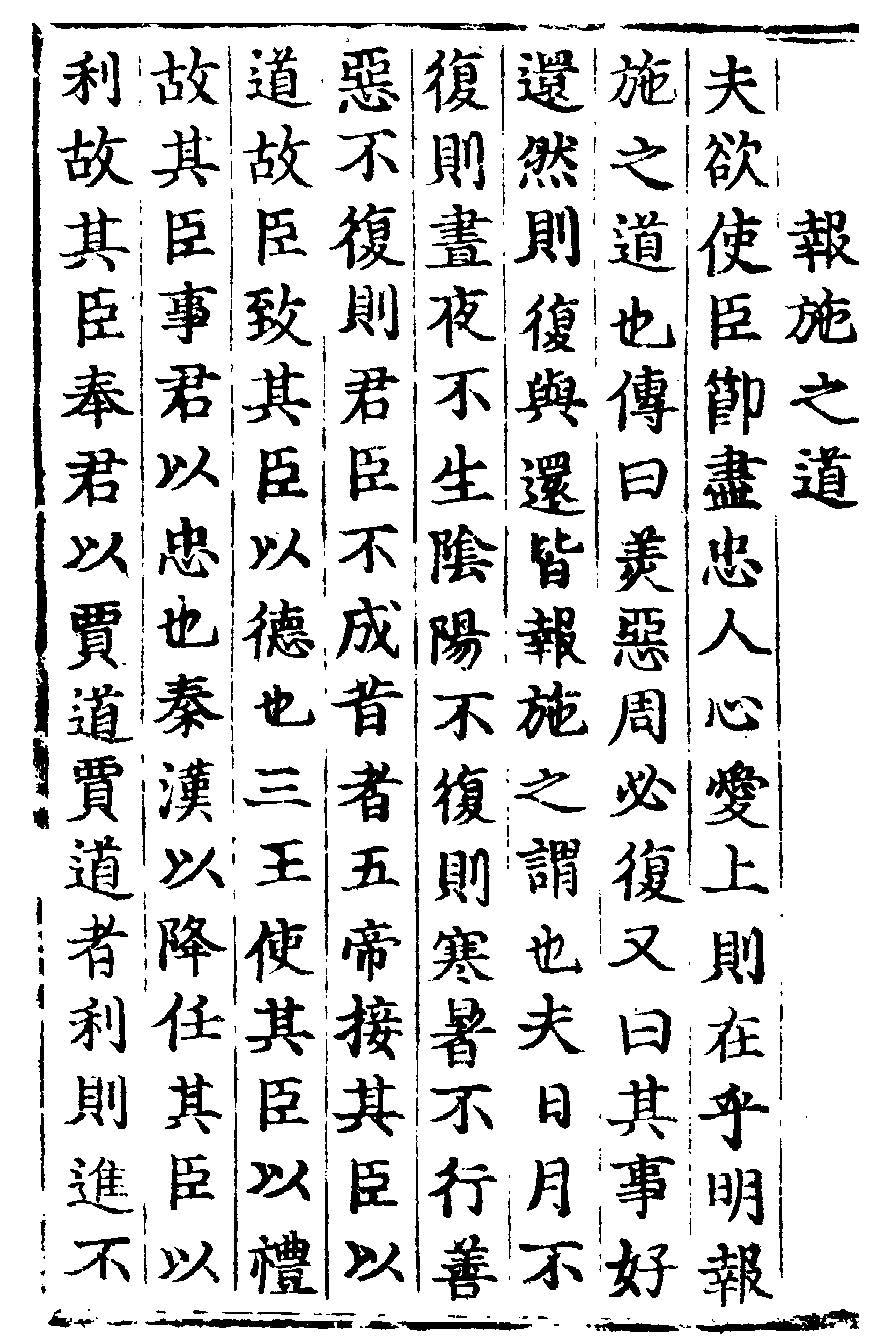 報施之道
夫欲使臣節盡忠人心愛上則在乎明報
施之道也傳曰美惡周必復又曰其事好
還然則復與還皆報施之謂也夫日月不
復則晝夜不生陰陽不復則寒暑不行善
惡不復則君臣不成昔者五帝接其臣以
道故臣致其臣以德也三王使其臣以禮
故其臣事君以忠也秦漢以降任其臣以
利故其臣奉君以賈道賈道者利則進不